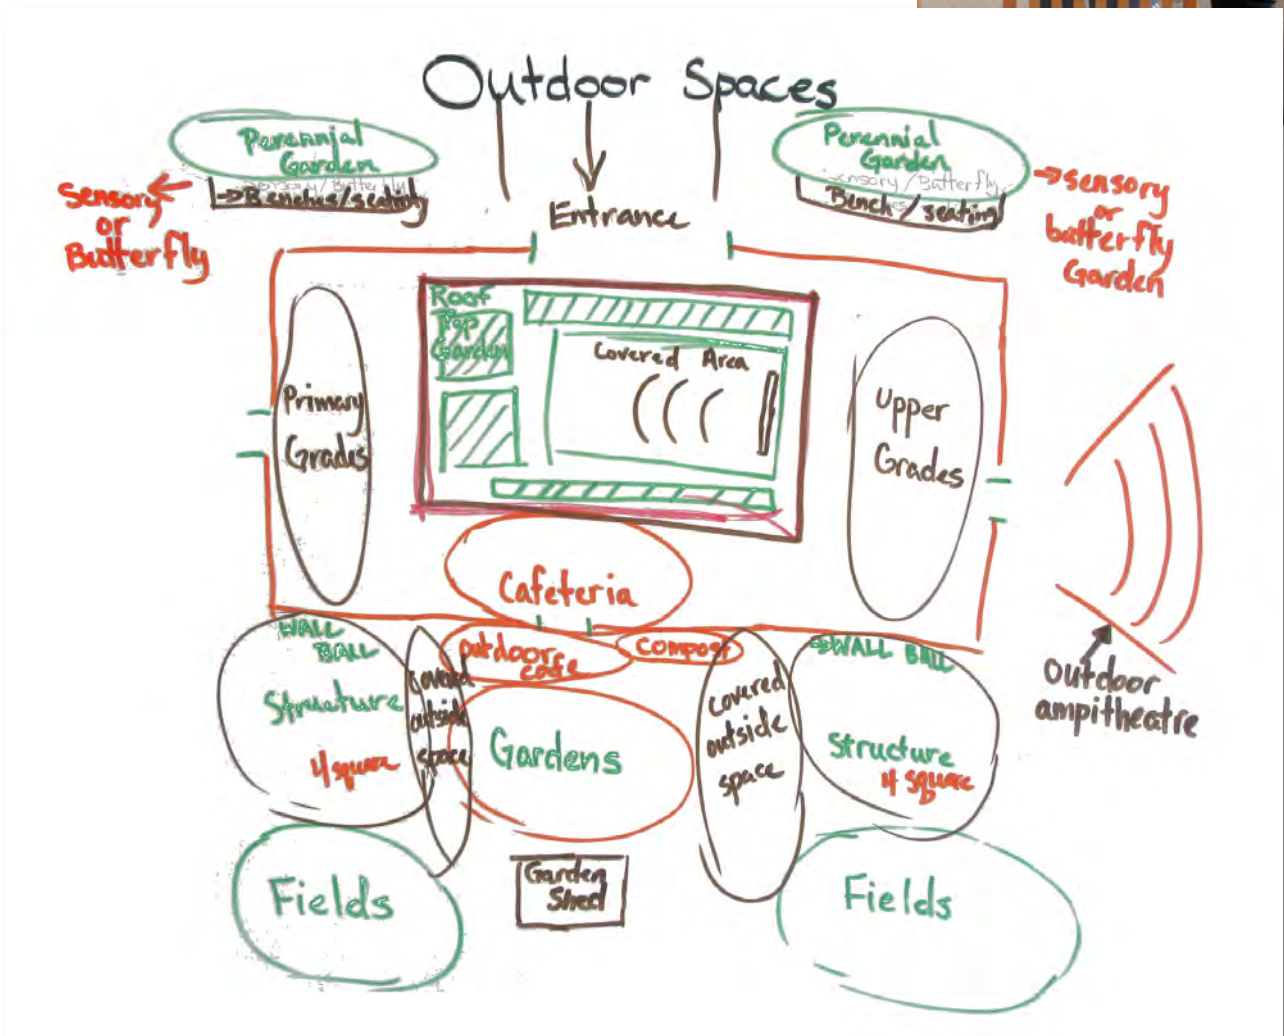 Outdoor Spaces
Perennial
Garden
Sensory/Butterfly
→Benches/seating
Sensory
or
Butterfly
Entrance
Perennial
Garden
Sensory/Butterfly
Bench/seating
→sensory
or
butterfly
Garden
Roof
Top
Garden
Covered Area
Primary
Grades
Upper
Grades
Cafeteria
WALL
BALL
Structure
4 square
covered
outside
space
outdoor
cafe
compost
Gardens
covered
outside
space
→WALL BALL
Structure
4 square
outdoor
ampitheatre
Fields
Garden
Shed
Fields